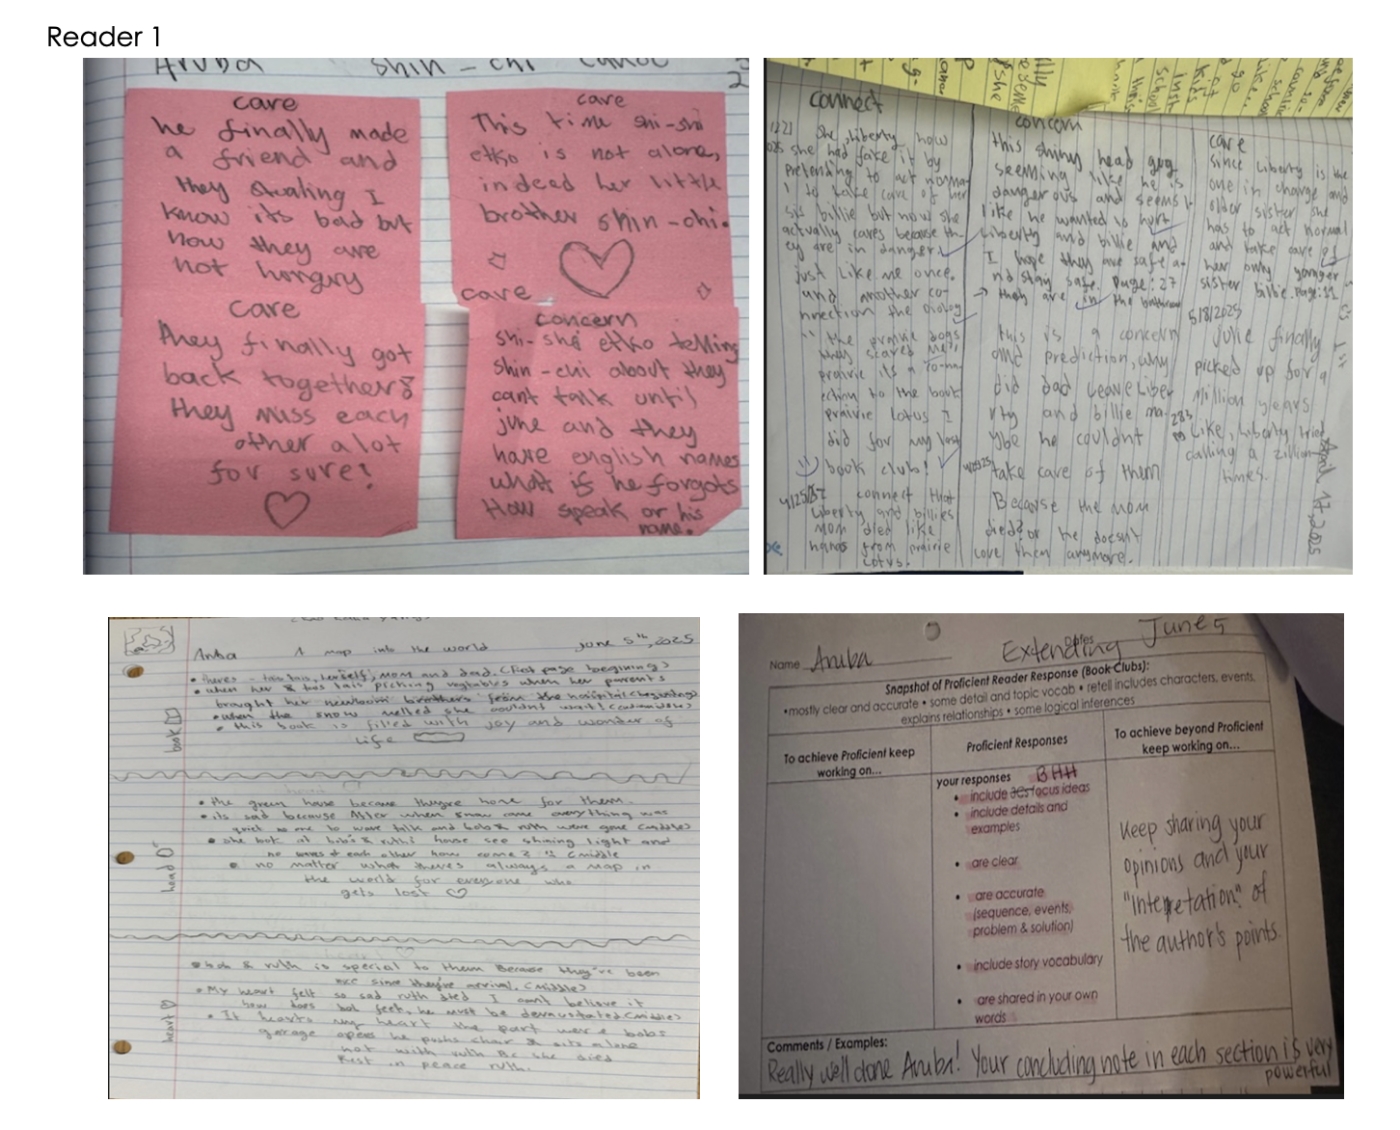 Reader 1
Aruba shin-chi canoe
care
he finally made
a friend and
they stealing I
know its bad but
now they are
not hungry
care
they finally got
back together
they miss each
other a lot
for sure!
care
This time shi-shi
etko is not alone,
indeed her little
brother shin-chi.
care
concern
shi-shi etko telling
shin-chi about they
cant talk until
june and they
have english names
what if he forgots
How speak or his
name.
connect
she, liberty how
she had fake it by
pretending to act normal
to take care of her
sis billie but now she
actually cares because th-
ey are in danger
just like me once.
and another co-
nnection the
the prairie dogs
they scared me!!
prairie its a
to the book
prairie lotus I
did for my last
book club!
connect that
Liberty and billies
mom died like
from prairie
Lotus.
concern
this shiny head guy
seeming like he is
dangerous and seems
like he wanted to hurt
Liberty and billie and
I hope they are safe a-
nd stay safe. Page: 27
they are in the
this is a concern
and prediction, why
did dad leave Liber
rty and billie ma-
ybe he couldnt
take care of them
Because the mom
died? or he doesnt
love them anymore.
care
since Liberty is the
one in charge and
older sister she
has to act normal
and take care of
her only younger
sister billie. Page: 11
5/8/2025
Julie finally
picked up for a
million years
Like, liberty tried
calling a zillion
times.
April 17, 2025
Aruba A map into the world June 5th, 2025
brought her newborn brothers from the hospital (beginning)
when the snow melted she couldnt wait!
this book is filled with joy and wonder of
Life
book
the green house became theyre home for them.
its sad because After when snow came everything was
quiet no one to wave talk and bob & ruth were gone (middle)
she look at bob's & ruth's house see shining light and
no waves at each other how come? (middle
no matter what theres always a map in
the world for everyone who
gets lost
head
bob & ruth is special to them Because they've been
nice since theyre arrival. (middle)
My heart felt so sad ruth died I cant believe it
how does bob feel, he must be devaustated (middle)
It hearts my heart the part were bobs
garage opens he pushs chair & sits alone
not with ruth Bc she died
Rest in peace ruth.
heart
Name Aruba Extending Dates June 5
Snapshot of Proficient Reader Response (Book Clubs):
•mostly clear and accurate • some detail and topic vocab • retell includes characters, events,
explains relationships • some logical inferences
To achieve Proficient keep
working on...
Proficient Responses
your responses BHH
• include 3cs focus ideas
• include details and
examples
• are clear
• are accurate
(sequence, events,
problem & solution)
• include story vocabulary
• are shared in your own
words
To achieve beyond Proficient
keep working on...
Keep sharing your
opinions and your
"interpretation" of
the author's points.
Comments / Examples:
Really well done Aruba! Your concluding note in each section is very
powerful